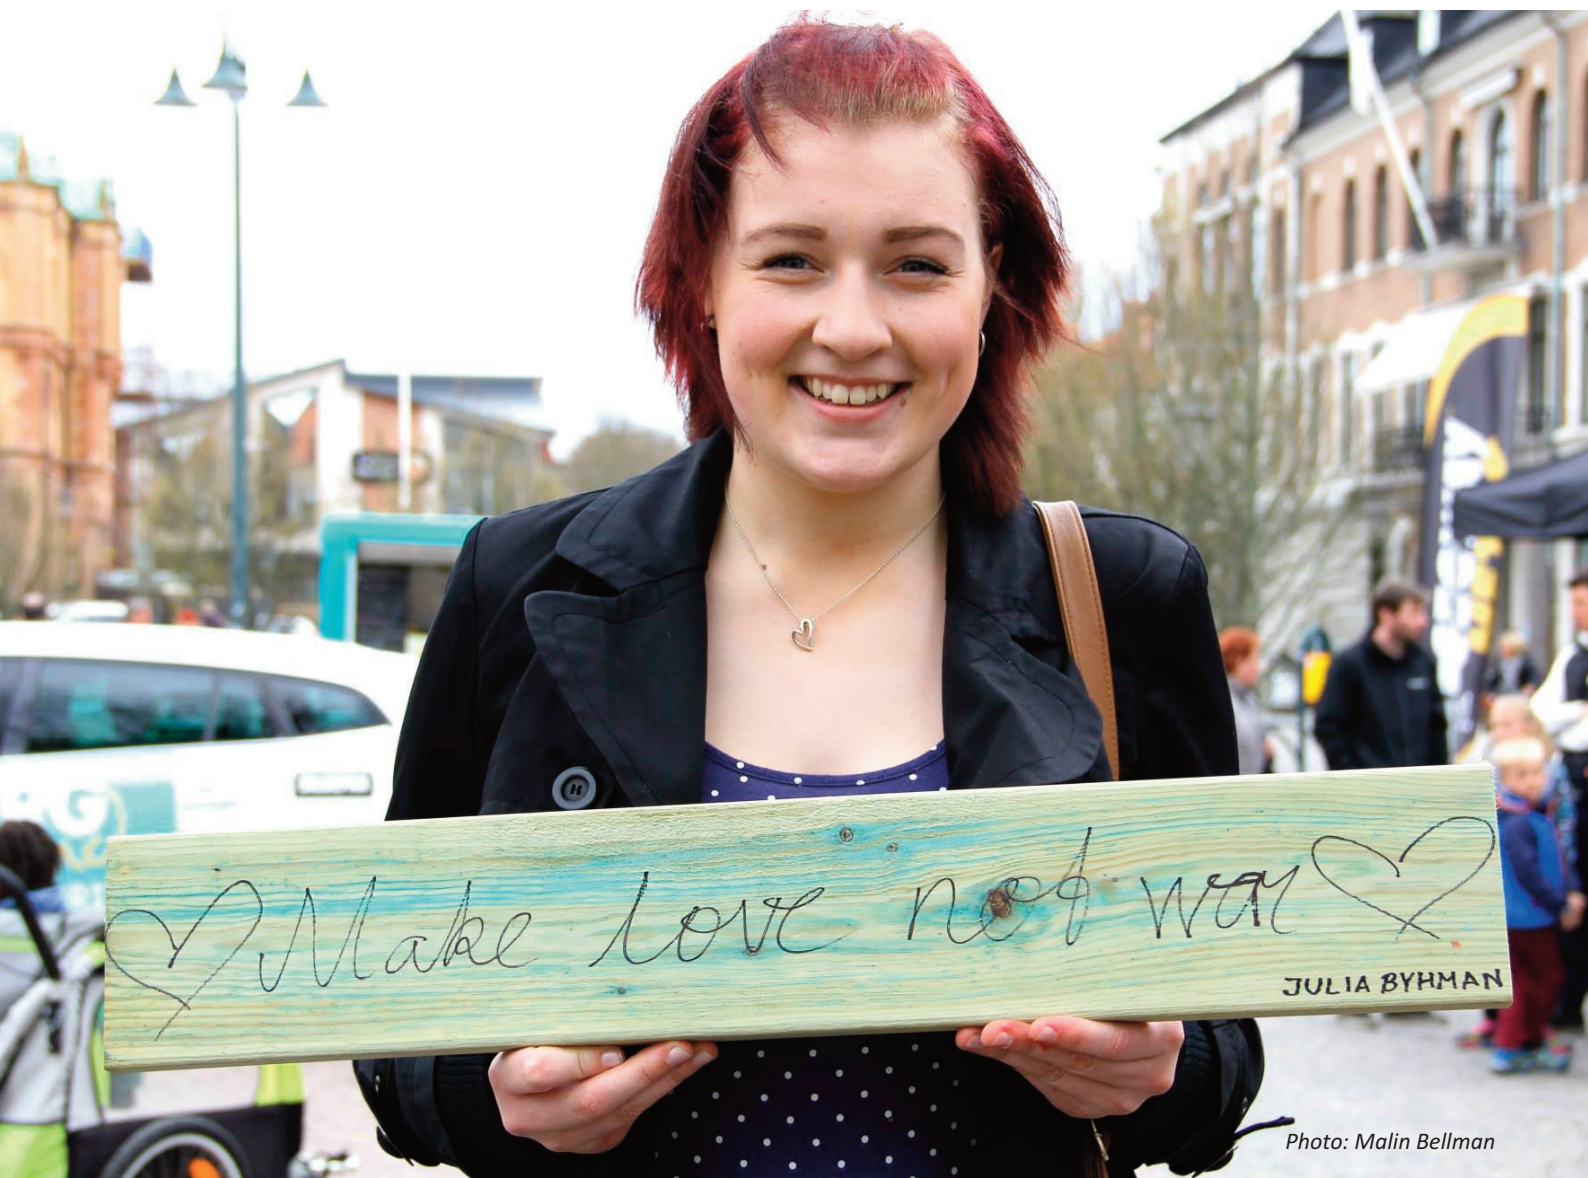 Make love not war
JULIA BYHMAN
Photo: Malin Bellman